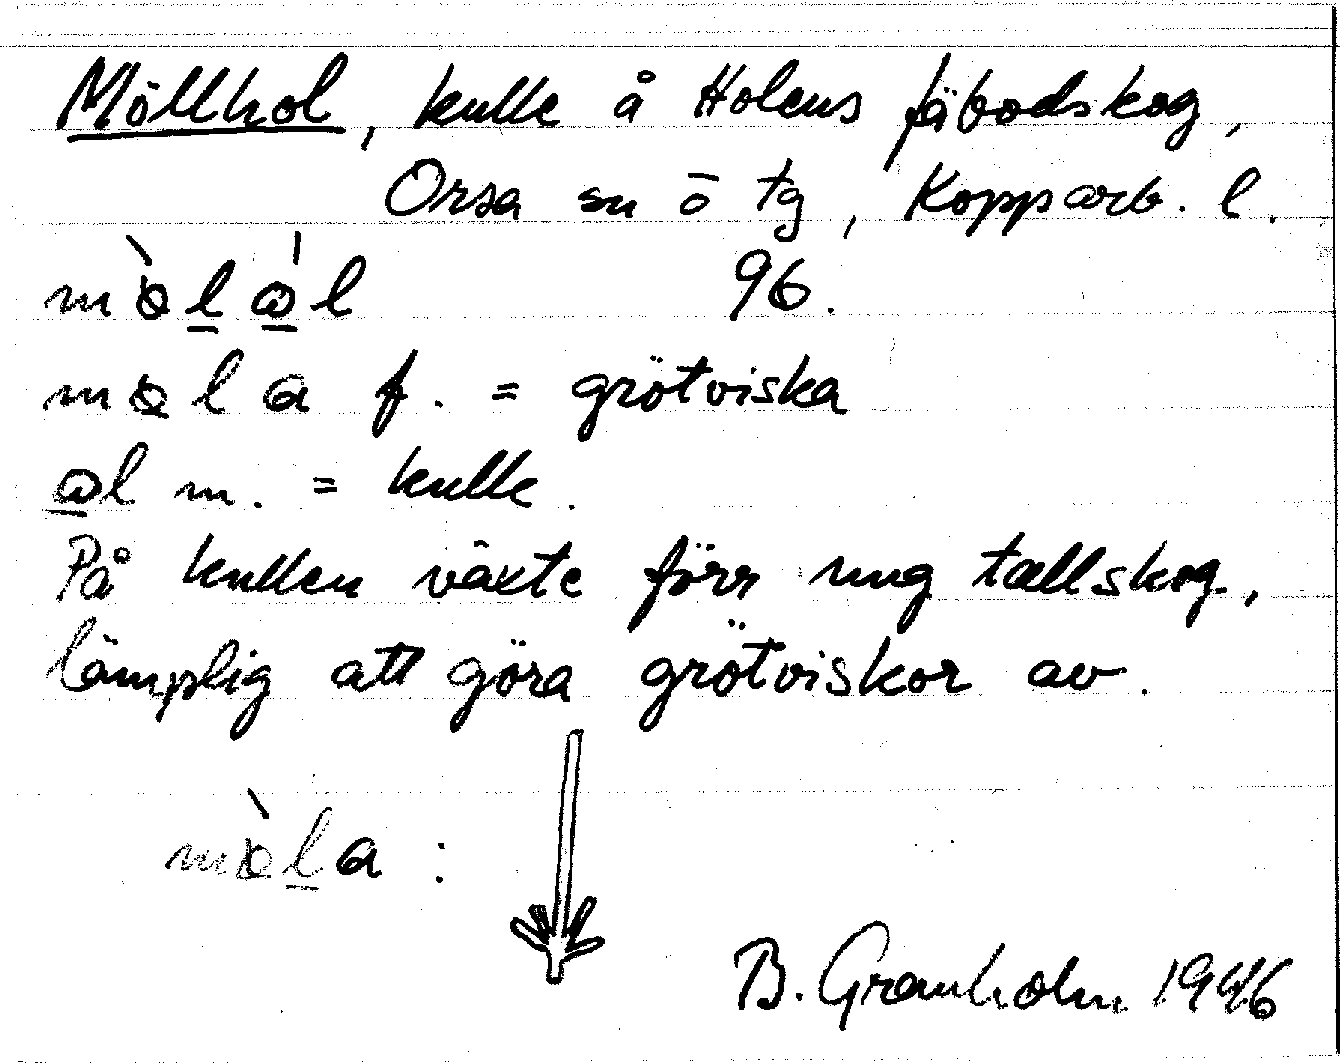 Möllhol, kulle å Holens fäbodskog,
Orsa sn ō tg, Kopparb. l.
96.
f. = grötviska
m. = kulle.
På kullen växte förr ung tallskog,
lämplig att göra grötviskor av.
B. Granholm 1946